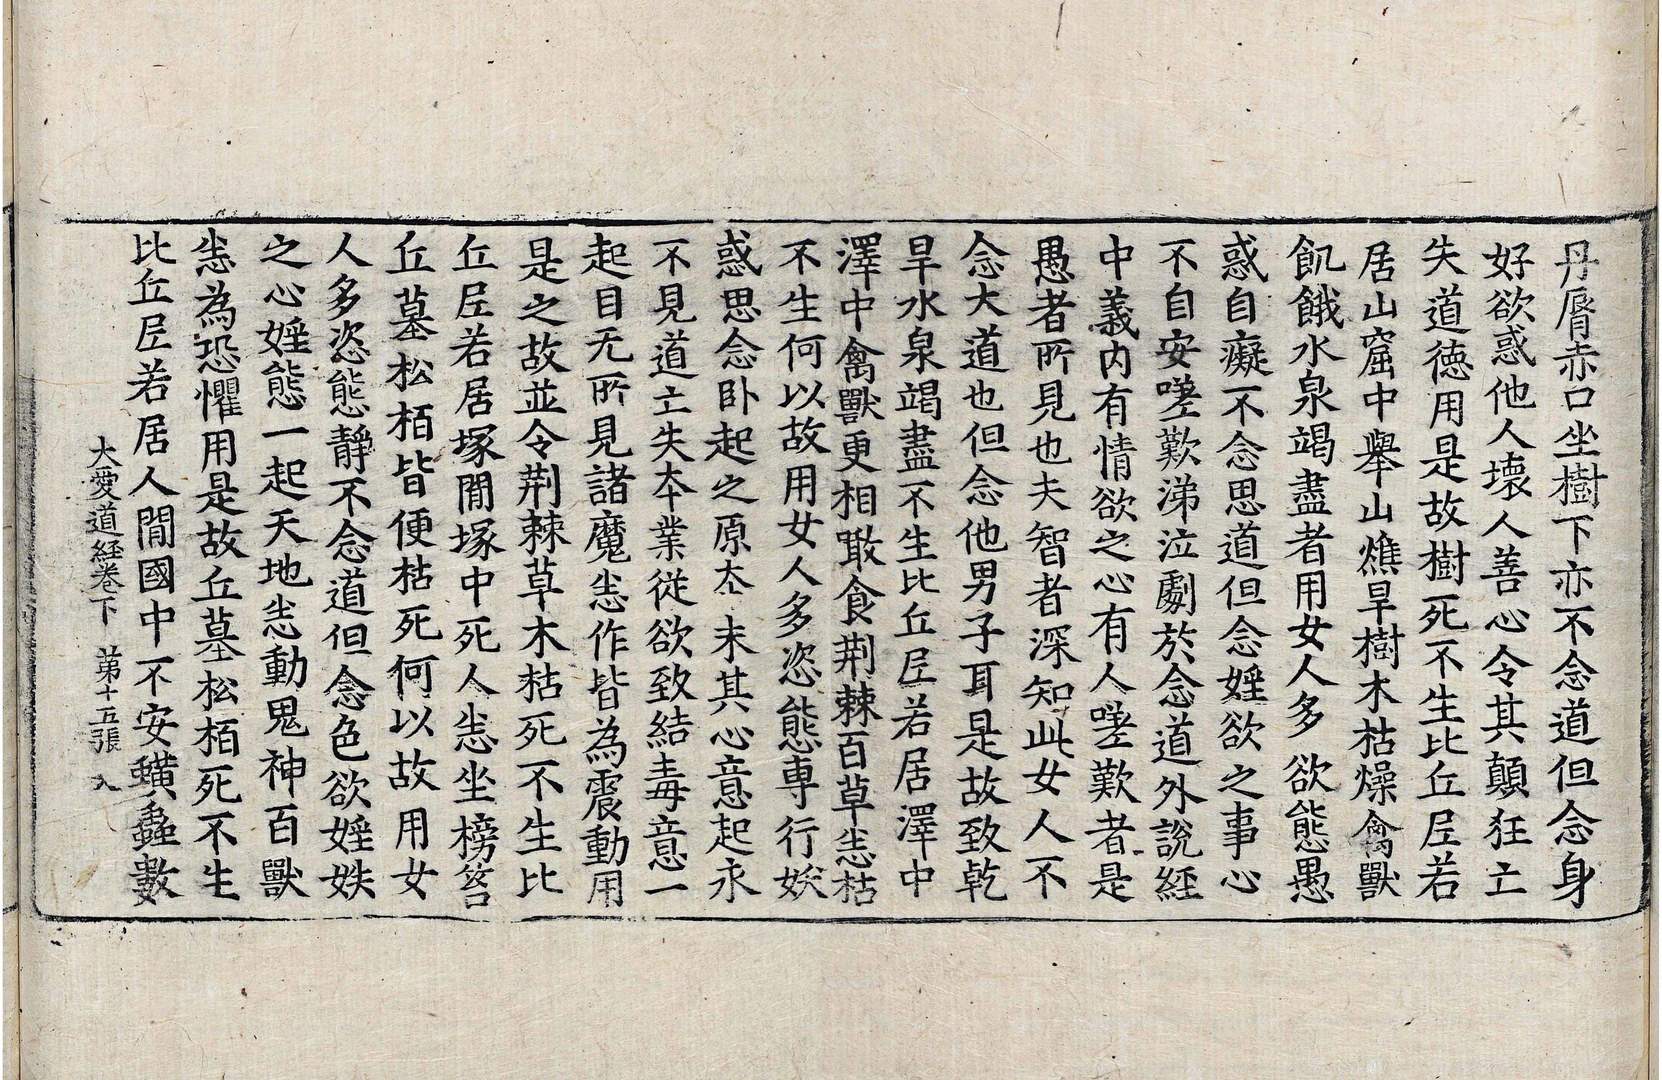 丹脣赤口坐樹下亦不念道但念身
好欲惑他人壞人善心令其顛狂亡
失道德用是故樹死不生比丘尼若
居山窟中舉山燋旱樹木枯燥禽獸
飢餓水泉竭盡者用女人多欲態愚
惑自癡不念思道但念婬欲之事心
不自安嗟歎涕泣劇於念道外說經
中義內有情欲之心有人嗟歎者是
愚者所見也夫智者深知此女人不
念大道也但念他男子耳是故致乾
旱水泉竭盡不生比丘尼若居澤中
澤中禽獸更相噉食荆棘百草恙枯
不生何以故用女人多恣態專行妖
惑思念卧起之原本末其心意起永
不見道亡失本業從欲致結毒意一
起目无所見諸魔恙作皆為震動用
是之故並令荆棘草木枯死不生比
丘尼若居塚間塚中死人恙坐搒笞
丘墓松栢皆便枯死何以故用女
人多恣態靜不念道但念色欲婬妷
之心婬態一起天地恙動鬼神百獸
恙為恐懼用是故丘墓松栢死不生
比丘尼若居人間國中不安蟥蟲數
大愛道經卷下 第十五張 入